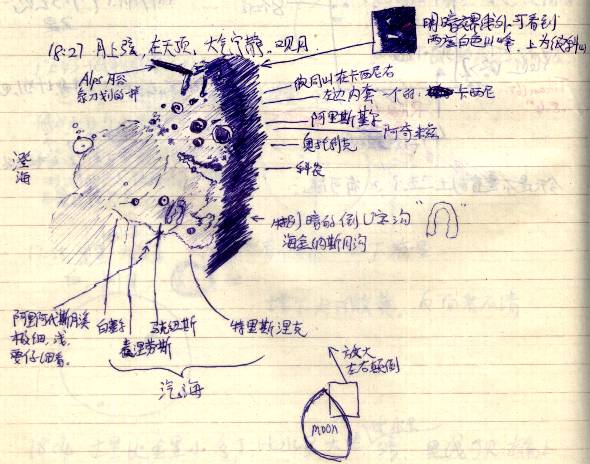 18:27 月上弦,在天顶,大气宁静。观月
明暗交界线外,可看到
两座白色山峰,上为
Alps月谷
象刀划的一样
澄海
左边内套一个的 卡西尼
阿里斯基尔
阿奇米兹
奥托利克
特别暗的倒U字沟
海金纳斯月沟
阿里阿代斯月溪
极细,浅,
要仔细看。
白塞尔
麦涅劳斯
特里斯涅克
汽海
放大
左右颠倒
moon